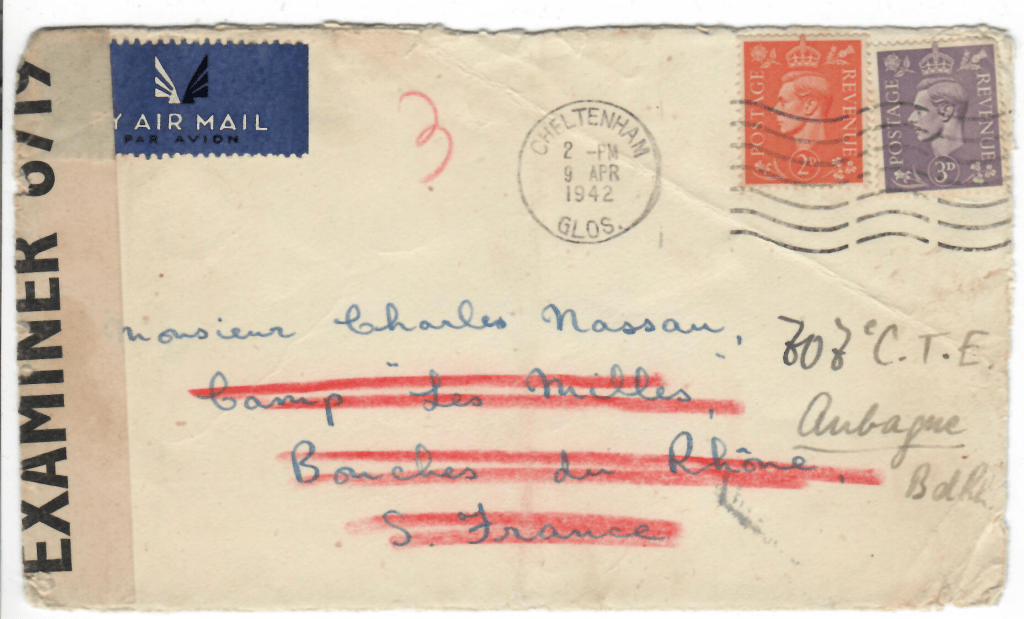 EXAMINER 6719
Y AIR MAIL
PAR AVION
3
CHELTENHAM
2 -PM
9 APR
1942
GLOS.
POSTAGE REVENUE
2D
POSTAGE REVENUE
3D
Monsieur Charles Nassau,
Camp "Les Milles",
Bouches du Rhône,
S. France
707e C.T.E.
Aubagne
BdRh